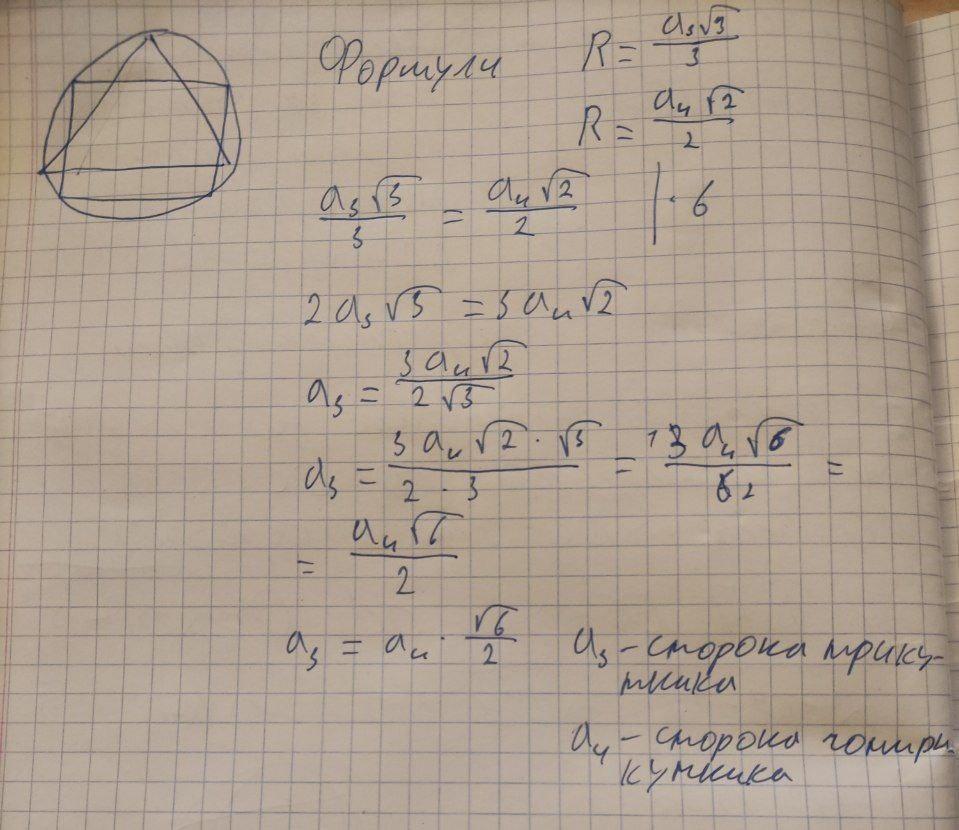 Формули R = a₃√3/3
R = a₄√2/2
a₃√3/3 = a₄√2/2 | · 6
2a₃√3 = 3a₄√2
a₃ = 3a₄√2/2√3
a₃ = 3a₄√2 · √3/2 · 3 = ¹3a₄√6/6 2 =
= a₄√6/2
a₃ = a₄ · √6/2 a₃ - сторона трику-
тника
a₄ - сторона чотири-
кутника